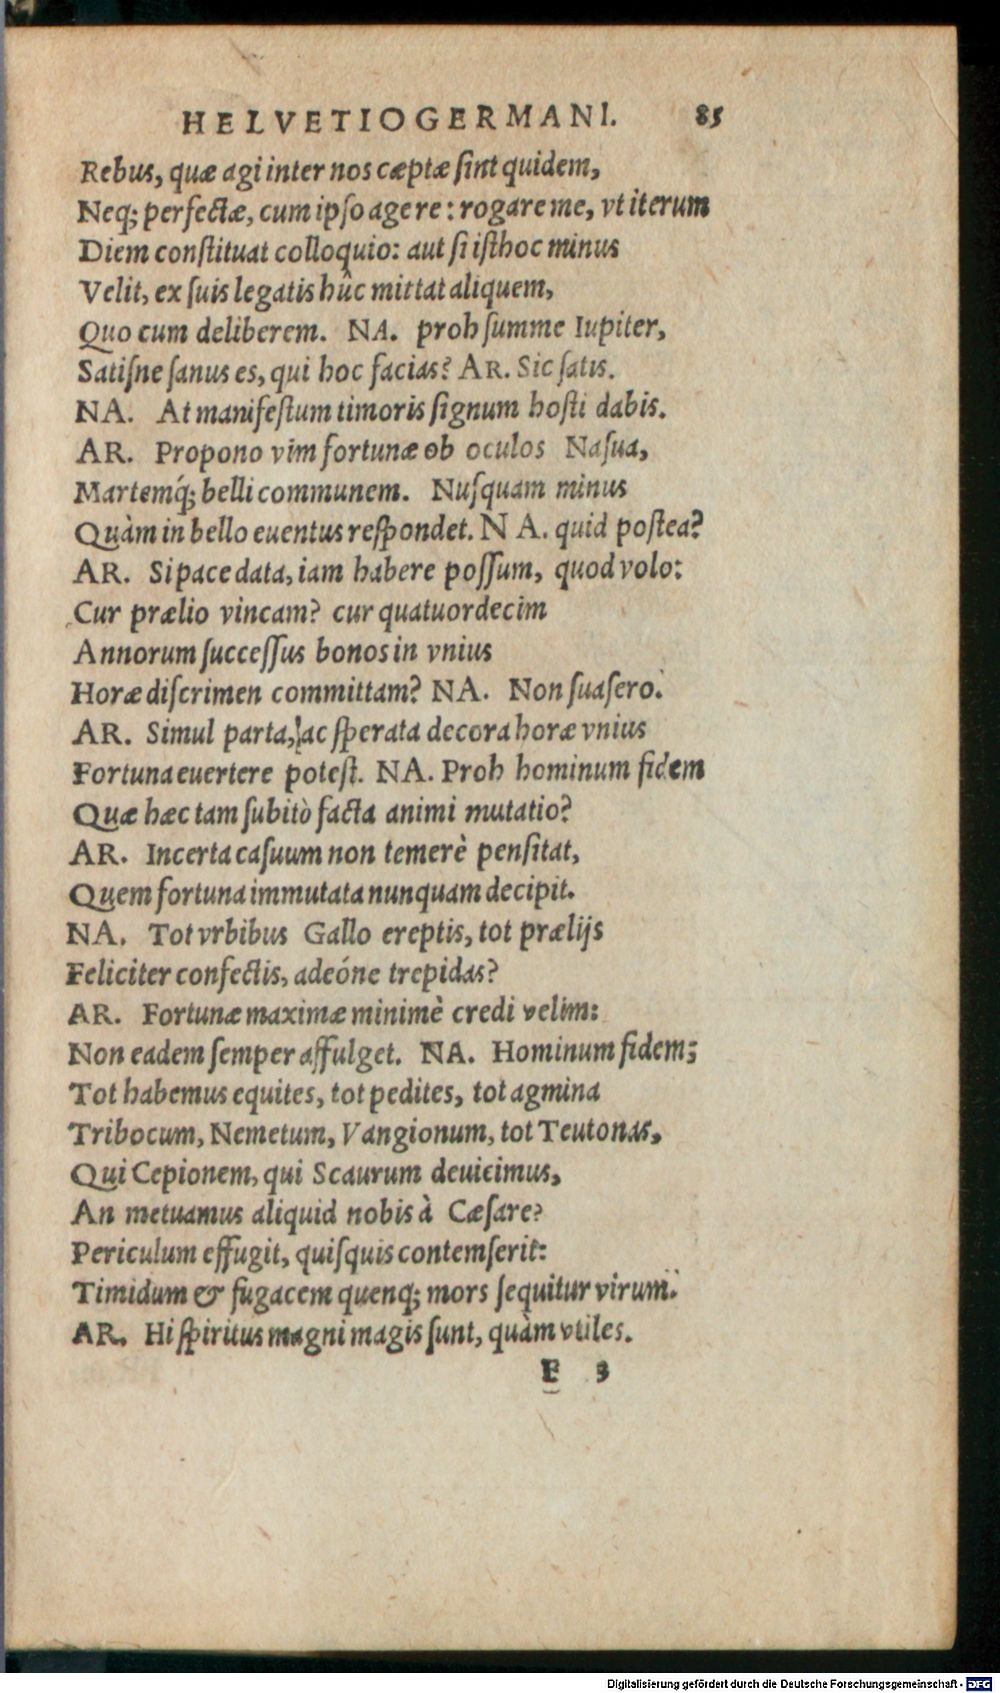 HELVETIOGERMANI. 85
Rebus, quæ agi inter nos cæptæ ſint quidem,
Neq; perfectæ, cum ipſo agere: rogare me, vt iterum
Diem conſtituat colloquio: aut ſi iſthoc minus
Velit, ex ſuis legatis hûc mittat aliquem,
Quo cum deliberem. NA. proh ſumme Iupiter,
Satiſne ſanus es, qui hoc facias? AR. Sic ſatis.
NA. At manifeſtum timoris ſignum hoſti dabis.
AR. Propono vim fortunæ ob oculos Naſua,
Martemq́; belli communem. Nuſquam minus
Quàm in bello euentus reſpondet. NA. quid poſtea?
AR. Si pace data, iam habere poſſum, quod volo:
Cur prælio vincam? cur quatuordecim
Annorum ſucceſſus bonos in vnius
Horæ diſcrimen committam? NA. Non ſuaſero.
AR. Simul parta, ac ſperata decora horæ vnius
Fortuna euertere poteſt. NA. Proh hominum fidem
Quæ hæc tam ſubitò facta animi mutatio?
AR. Incerta caſuum non temerè penſitat,
Quem fortuna immutata nunquam decipit.
NA. Tot vrbibus Gallo ereptis, tot prælijs
Feliciter confectis, adeóne trepidas?
AR. Fortunæ maximæ minimè credi velim:
Non eadem ſemper affulget. NA. Hominum fidem;
Tot habemus equites, tot pedites, tot agmina
Tribocum, Nemetum, Vangionum, tot Teutonas,
Qui Cepionem, qui Scaurum deuicimus,
An metuamus aliquid nobis à Cæſare?
Periculum effugit, quiſquis contemſerit:
Timidum & fugacem quenq; mors ſequitur virum.
AR. Hi ſpiritus magni magis ſunt, quàm vtiles.
F 3
Digitalisierung gefördert durch die Deutsche Forschungsgemeinschaft - DFG